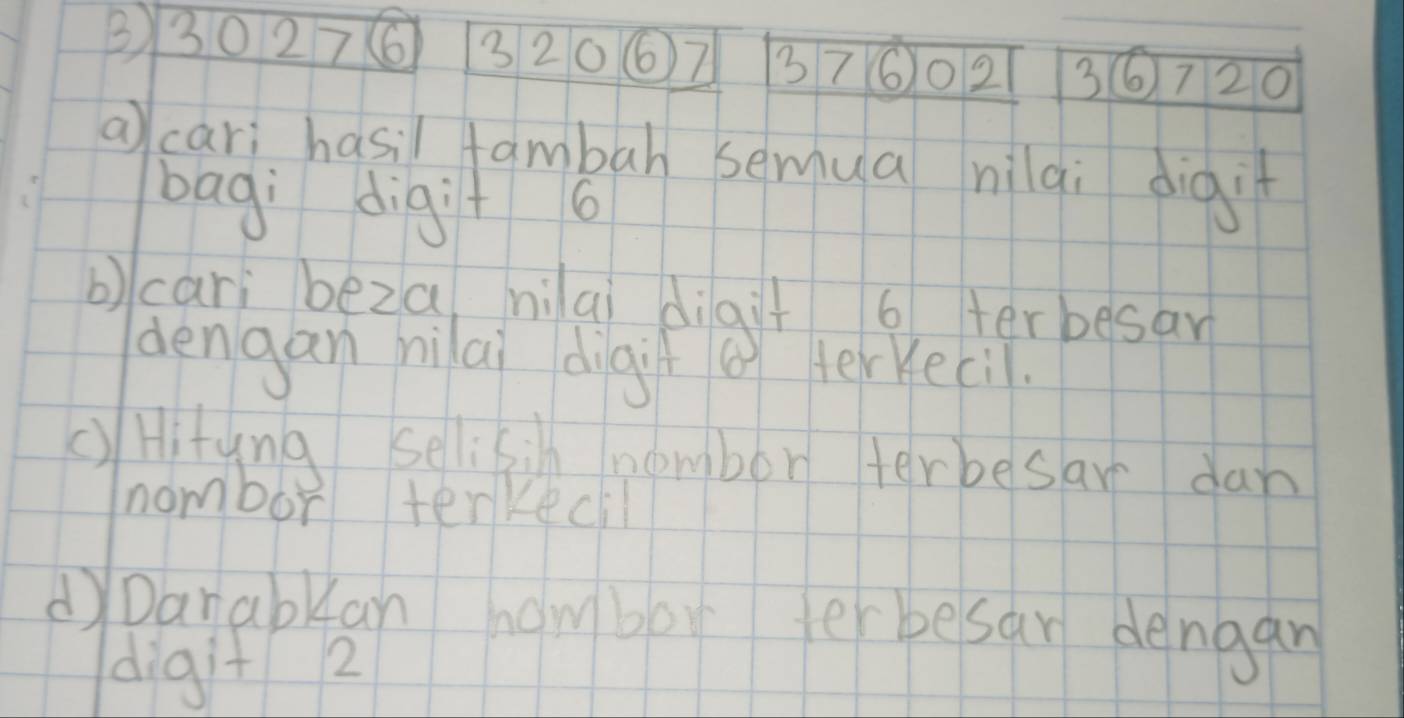 3) 30276 32067 37602 36720
a) cari hasil tambah semua nilai digit
bagi digit 6
b) cari beza nilai digit 6 terbesar
dengan nilai digit 6 terkecil.
c) Hitung selisih nombor terbesar dan
nombor terkecil
d) Darabkan nombor terbesar dengan
digit 2